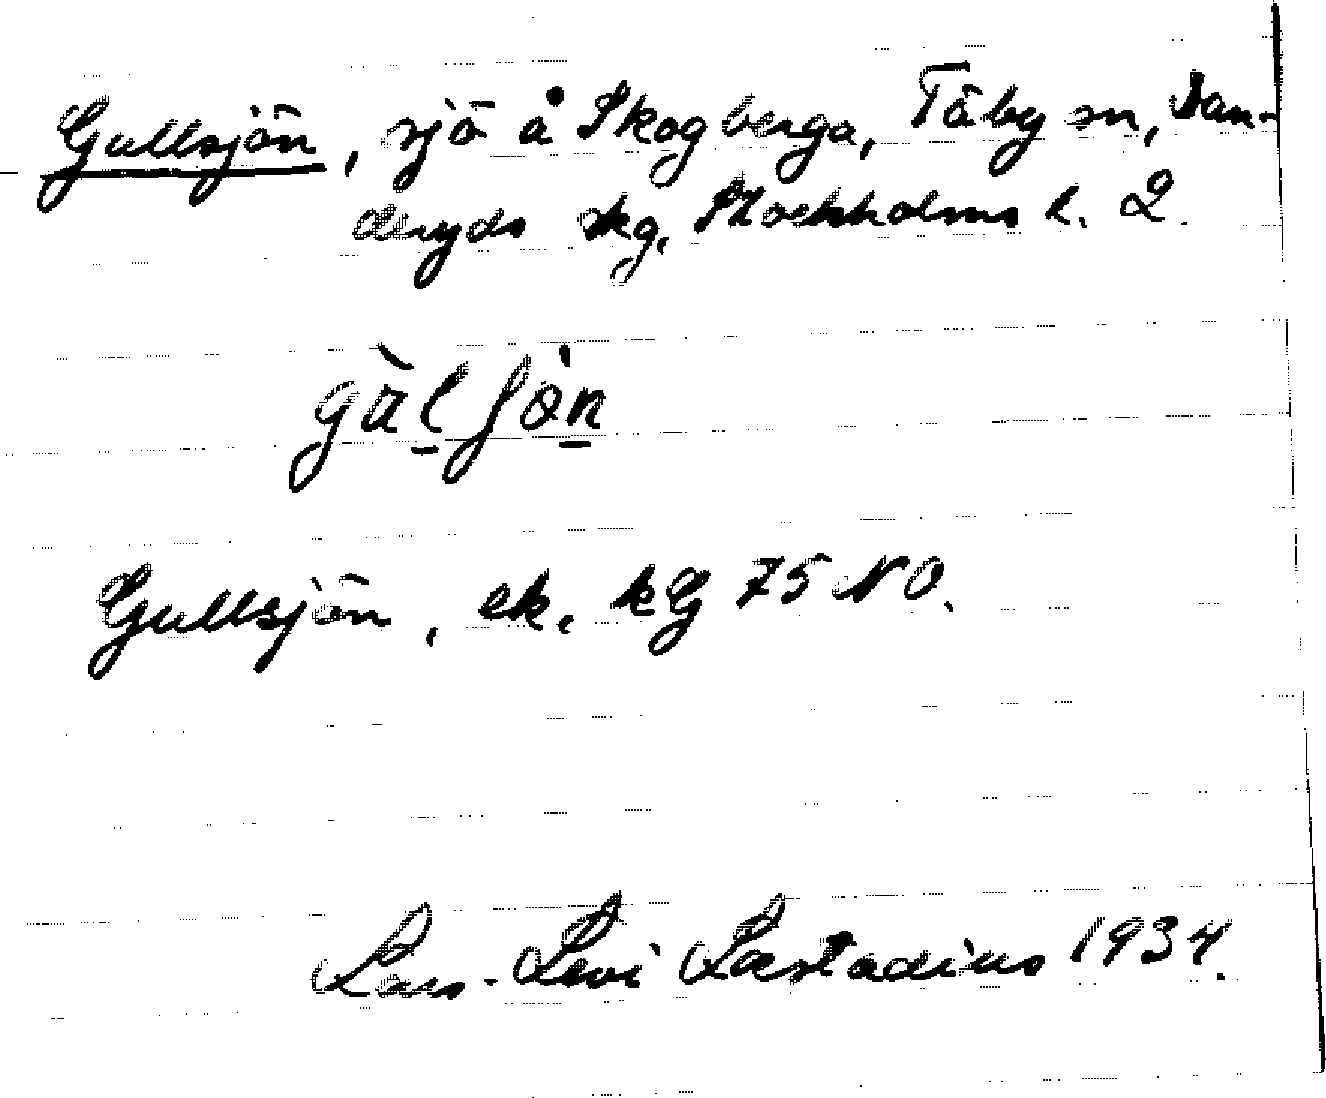 Gullsjön, sjö å Skogberga, Täby sn, Dan-
deryds skg, Stockholms l. 2.
gàl̠ ʃȯn̠
Gullsjön, ek. kG 75 NO.
Lars-Levi Læstadius 1934.